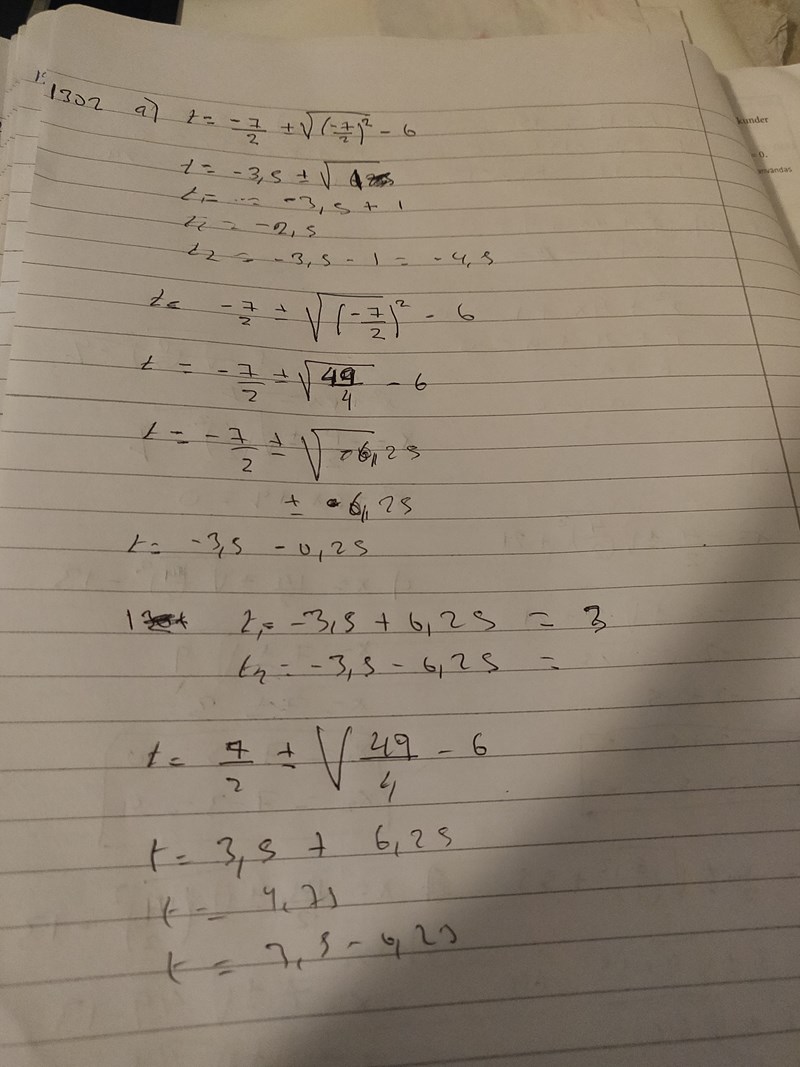 1302 a) t = -7/2 ± √(-7/2)² - 6
t = -3,5 ± √
t₁ = -3,5 + 1
= -2,5
t₂ = -3,5 - 1 = -4,5
t = -7/2 ± √(-7/2)² - 6
t = -7/2 ± √49/4 - 6
t = -7/2 ± √6,25
± 6,25
t = -3,5 - 0,25
t₁ = -3,5 + 6,25 = 3
t₂ = -3,5 - 6,25 =
t = 7/2 ± √49/4 - 6
t = 3,5 + 6,25
t = 9,75
t = 3,5 - 6,25
kunder
= 0.
användas